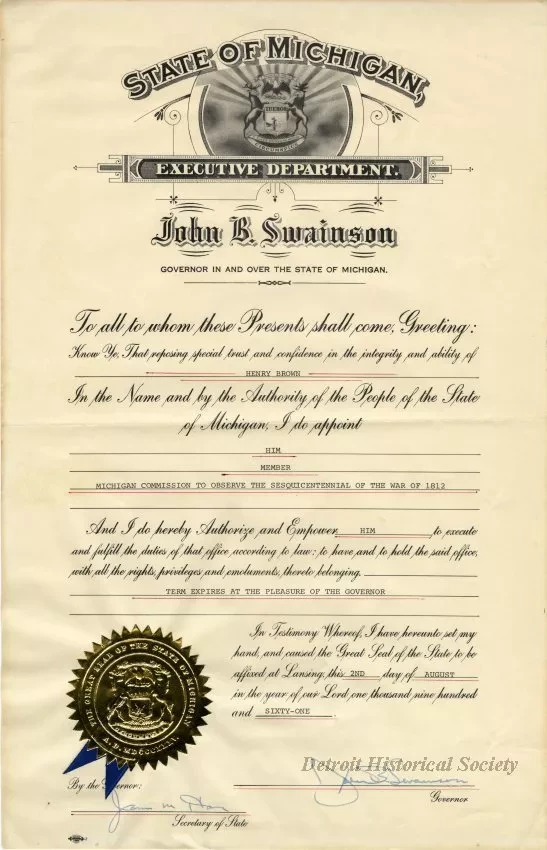 STATE OF MICHIGAN,
TUEBOR
CIRCUMSPICE
EXECUTIVE DEPARTMENT.
John B. Swainson
GOVERNOR IN AND OVER THE STATE OF MICHIGAN.
To all to whom these Presents shall come, Greeting:
Know Ye, That reposing special trust and confidence in the integrity and ability of
HENRY BROWN
In the Name and by the Authority of the People of the State
of Michigan, I do appoint
HIM
MEMBER
MICHIGAN COMMISSION TO OBSERVE THE SESQUICENTENNIAL OF THE WAR OF 1812
And I do hereby Authorize and Empower HIM to execute
and fulfill the duties of that office, according to law: to have and to hold the said office,
with all the rights, privileges, and emoluments, thereto belonging.
TERM EXPIRES AT THE PLEASURE OF THE GOVERNOR
In Testimony Whereof, I have hereunto set my
hand, and caused the Great Seal of the State to be
affixed at Lansing, this 2ND day of AUGUST
in the year of our Lord one thousand nine hundred
and SIXTY-ONE.
THE GREAT SEAL OF THE STATE OF MICHIGAN
Detroit Historical Society
By the Governor:
John B. Swainson
Governor
Secretary of State